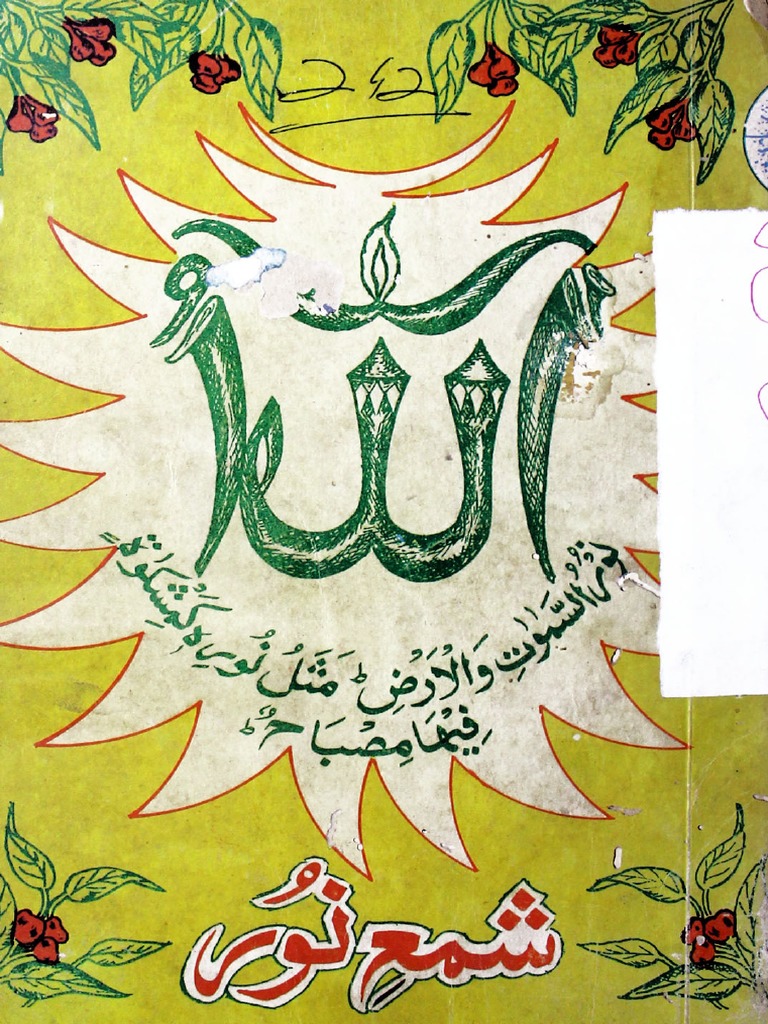 اللہ
نُورُ السَّمٰوٰتِ وَالْاَرْضِ ؕ مَثَلُ نُورِہٖ كَمِشْكٰوةٍ
فِيْهَا مِصْبَاحٌ ؕ
شمعِ نُور